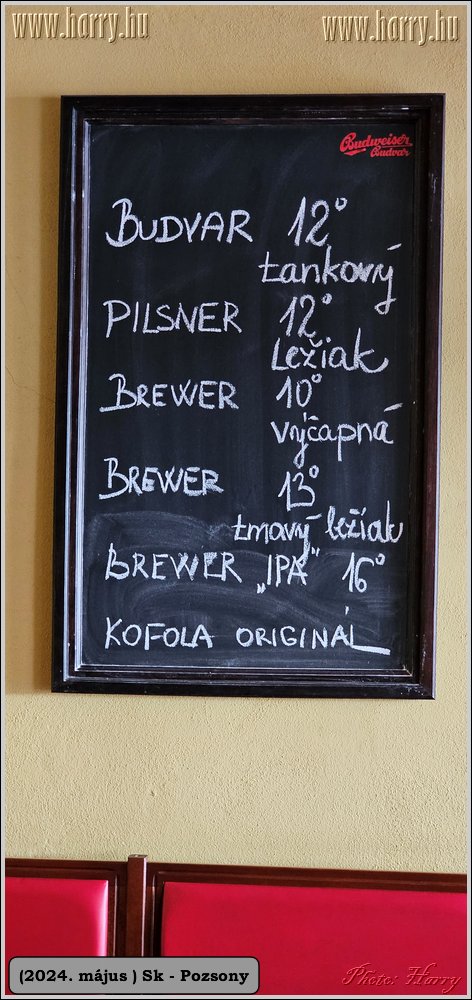 www.harry.hu www.harry.hu
Budweiser
Budvar
BUDVAR 12°
tankový
PILSNER 12°
Ležiak
BREWER 10°
Výčapná
BREWER 13°
tmavý ležiak
BREWER „IPA" 16°
KOFOLA ORIGINÁL
(2024. május ) Sk - Pozsony
Photo: Harry